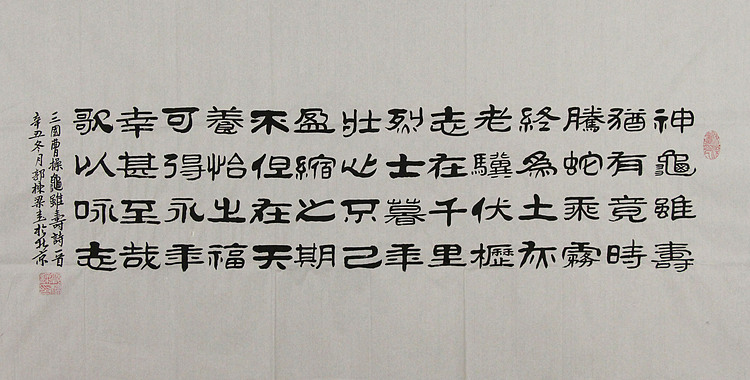 神龜雖壽
猶有竟時
騰蛇乘霧
終為土灰
老驥伏櫪
志在千里
烈士暮年
壯心不已
盈縮之期
不但在天
養怡之福
可得永年
幸甚至哉
歌以咏志
三國曹操龜雖壽詩首
辛丑冬月棟梁書於北京